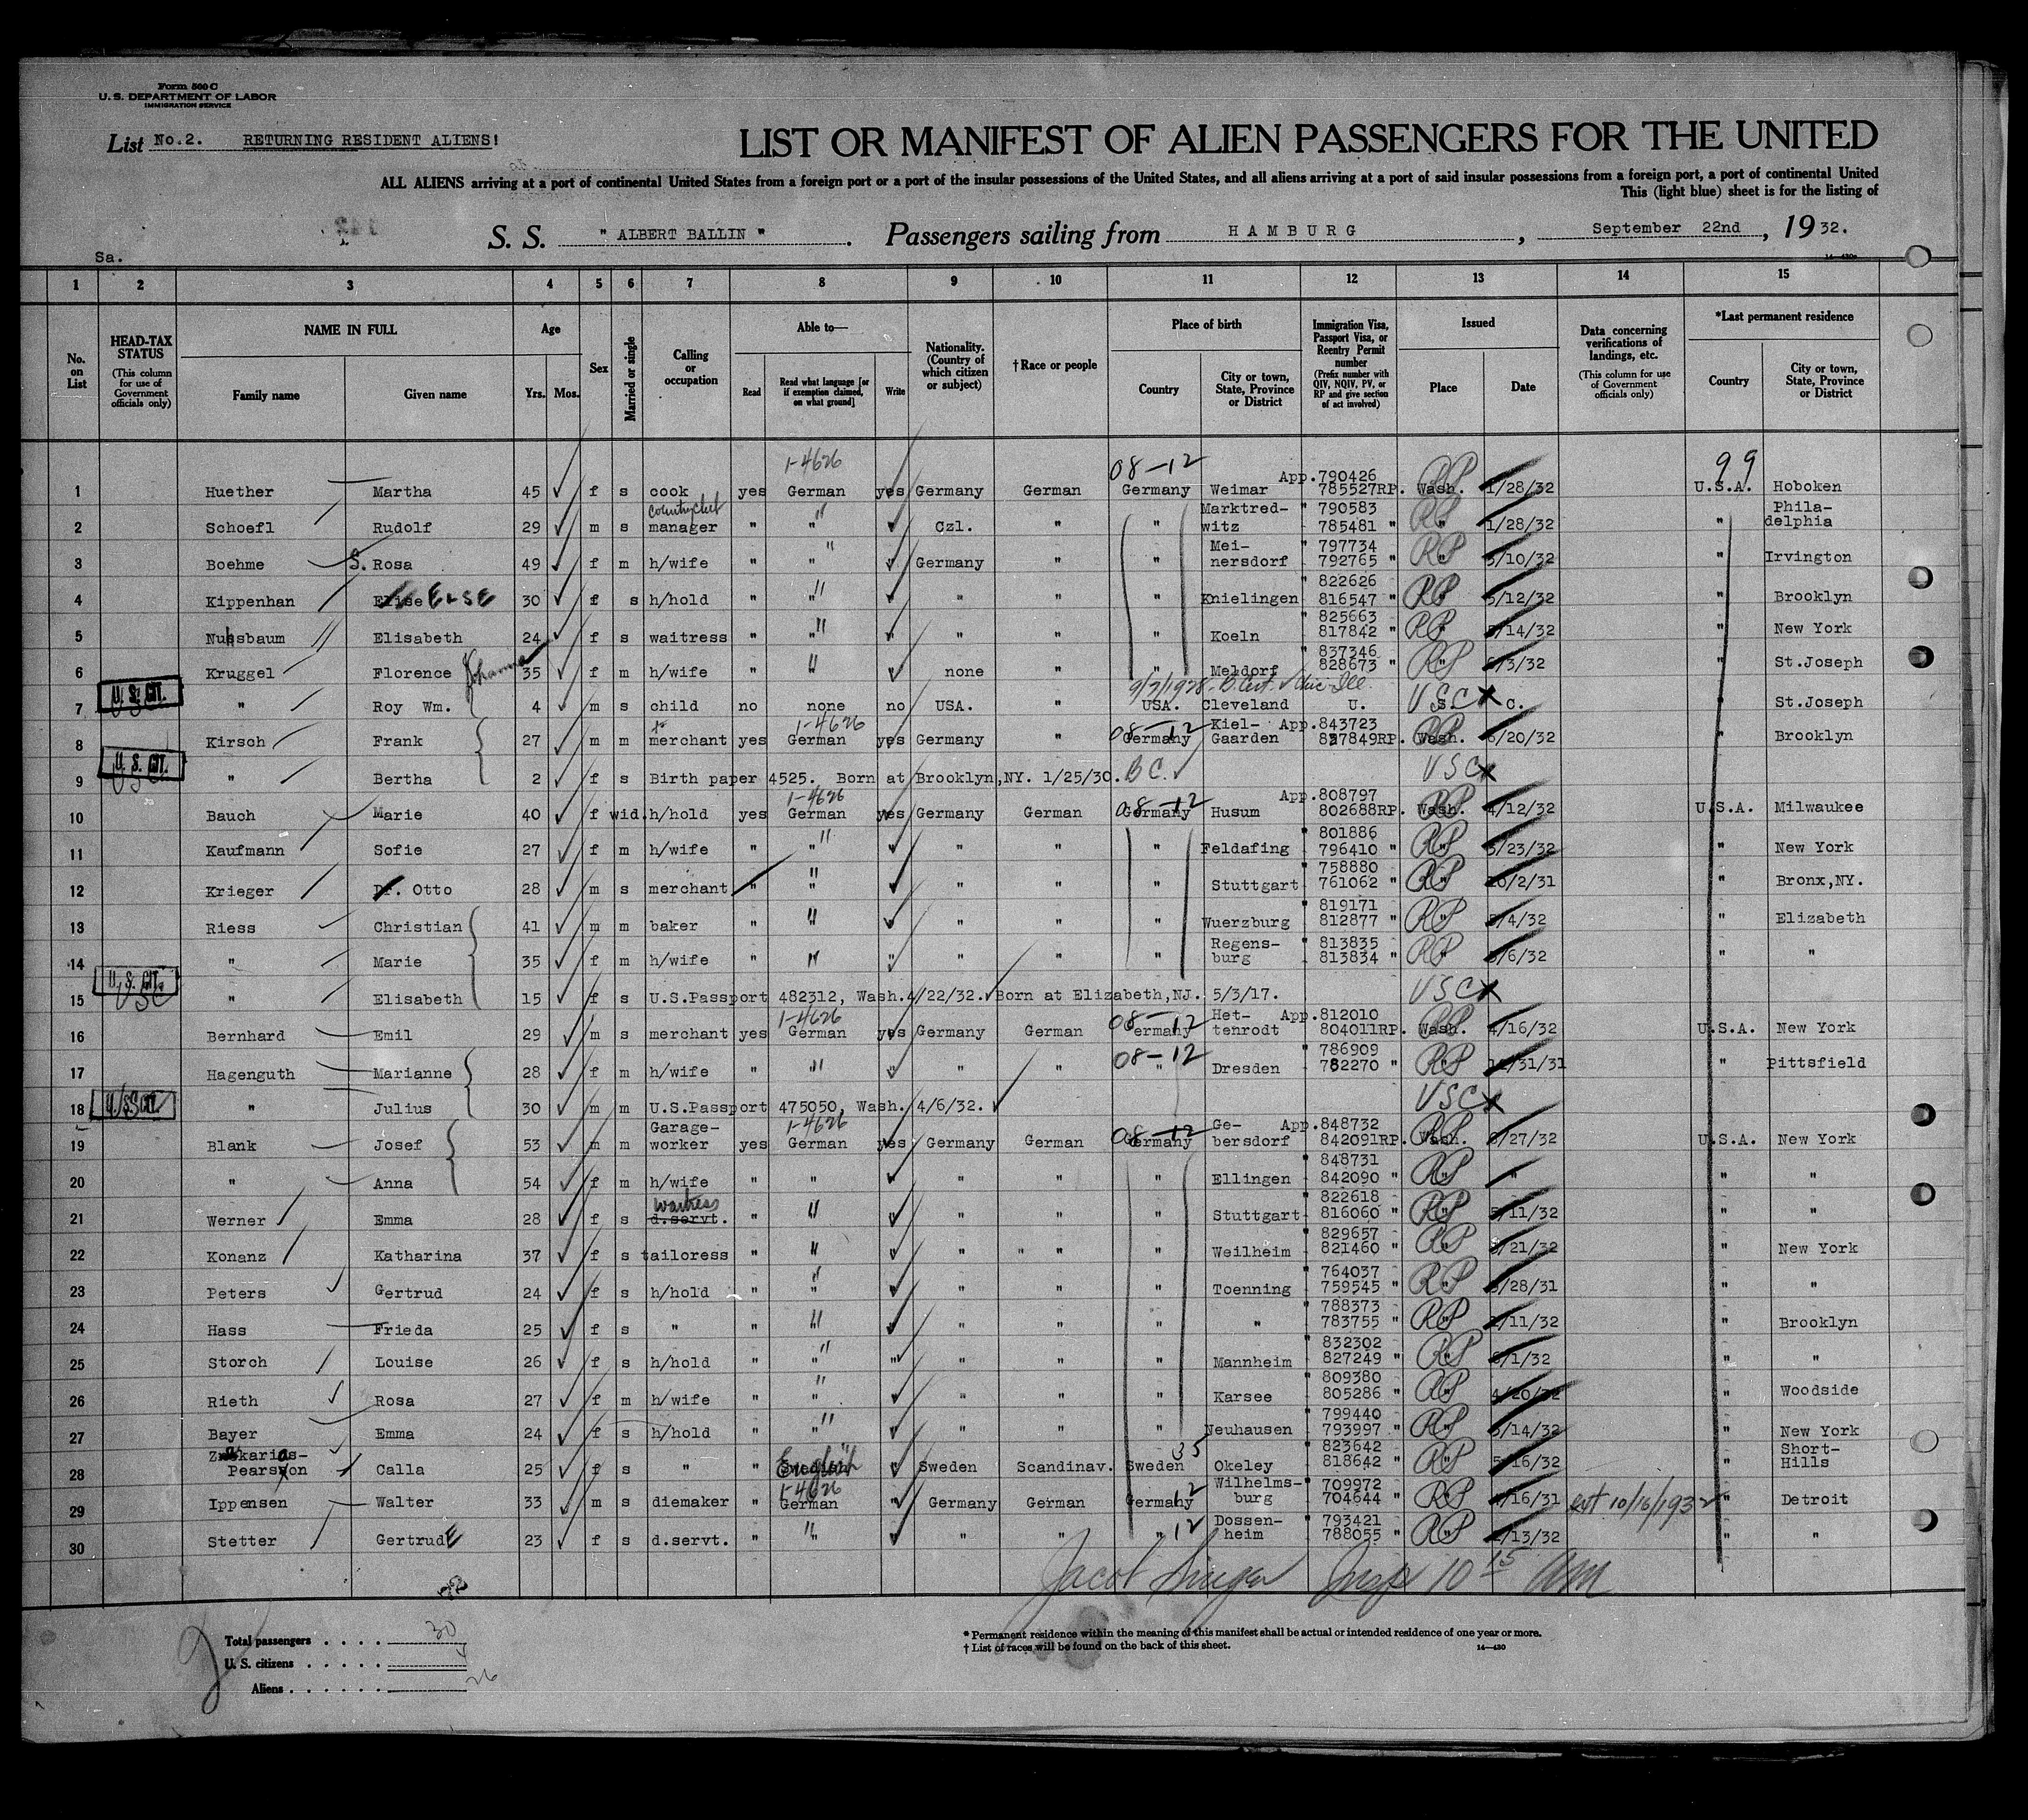 Form 500 C
U. S. DEPARTMENT OF LABOR
IMMIGRATION SERVICE
List No.2. RETURNING RESIDENT ALIENS!
LIST OR MANIFEST OF ALIEN PASSENGERS FOR THE UNITED
ALL ALIENS arriving at a port of continental United States from a foreign port or a port of the insular possessions of the United States, and all aliens arriving at a port of said insular possessions from a foreign port, a port of continental United
This (light blue) sheet is for the listing of
S. S. " ALBERT BALLIN " . Passengers sailing from HAMBURG , September 22nd , 19 32.
Sa.
1 2 3 4 5 6 7 8 9 10 11 12 13 14 15
No. on List
HEAD-TAX STATUS (This column for use of Government officials only)
NAME IN FULL Family name Given name
Age Yrs. Mos.
Sex
Married or single
Calling or occupation
Able to— Read Read what language [or if exemption claimed, on what ground] Write
Nationality. (Country of which citizen or subject)
†Race or people
Place of birth Country City or town, State, Province or District
Immigration Visa, Passport Visa, or Reentry Permit number (Prefix number with QIV, NQIV, PV, or RP and give section of act involved)
Issued Place Date
Data concerning verifications of landings, etc. (This column for use of Government officials only)
*Last permanent residence Country City or town, State, Province or District
1-4626 08-12 99
1 Huether Martha 45 f s cook yes German yes Germany German Germany Weimar App.790426 785527RP. Wash. RP 1/28/32 U.S.A. Hoboken
2 Schoefl Rudolf 29 m s country club manager " " Czl. " " Marktred-witz " 790583 785481 " RP " 1/28/32 " Phila-delphia
3 Boehme S. Rosa 49 f m h/wife " " Germany " " Mei-nersdorf " 797734 792765 " RP " 3/10/32 " Irvington
4 Kippenhan Elise ELSE 30 f s h/hold " " " " " Knielingen " 822626 816547 " RP " 5/12/32 " Brooklyn
5 Nussbaum Elisabeth 24 f s waitress " " " " " " Koeln " 825663 817842 " RP " 5/14/32 " New York
6 Kruggel Florence Johanna 35 f m h/wife " " none " " Meldorf " 837346 828673 " RP " 6/3/32 " St.Joseph
9/7/1928 B. Cert. Chic. Ill.
U. S. CIT. USC
7 " Roy Wm. 4 m s child no none no USA. " USA. Cleveland U. S. C. USC x " St.Joseph
1-4626 08-12
8 Kirsch Frank 27 m m merchant yes German yes Germany " Germany Kiel-Gaarden App.843723 837849RP. Wash. RP 6/20/32 " Brooklyn
U. S. CIT. USC
9 " Bertha 2 f s Birth paper 4525. Born at Brooklyn,NY. 1/25/30. BC. USC x
1-4626 08-12
10 Bauch Marie 40 f wid. h/hold yes German yes Germany German Germany Husum App.808797 802688RP. Wash. RP 4/12/32 U.S.A. Milwaukee
11 Kaufmann Sofie 27 f m h/wife " " " " " Feldafing " 801886 796410 " RP " 3/23/32 " New York
12 Krieger Dr. Otto 28 m s merchant " " " " " Stuttgart " 758880 761062 " RP " 10/2/31 " Bronx,NY.
13 Riess Christian 41 m m baker " " " " " " Wuerzburg " 819171 812877 " RP " 5/4/32 " Elizabeth
14 " Marie 35 f m h/wife " " " " " " Regens-burg " 813835 813834 " RP 5/6/32 " "
U. S. CIT. USC
15 " Elisabeth 15 f s U.S.Passport 482312, Wash.4/22/32. Born at Elizabeth,NJ. 5/3/17. USC x
1-4626 08-12
16 Bernhard Emil 29 m s merchant yes German yes Germany German Germany Het-tenrodt App.812010 804011RP. Wash. RP 4/16/32 U.S.A. New York
08-12
17 Hagenguth Marianne 28 f m h/wife " " " " " " Dresden " 786909 782270 " RP " 12/31/31 " Pittsfield
U. S. CIT.
18 " Julius 30 m m U.S.Passport 475050, Wash. 4/6/32. USC x
1-4626 08-12
19 Blank Josef 53 m m Garage-worker yes German yes Germany German Germany Ge-bersdorf App.848732 842091RP. Wash. RP 6/27/32 U.S.A. New York
20 " Anna 54 f m h/wife " " " " " Ellingen " 848731 842090 " RP " " " "
21 Werner Emma 28 f s waitress d.servt. " " " " " " Stuttgart " 822618 816060 " RP " 5/11/32 " "
22 Konanz Katharina 37 f s tailoress " " " " " " Weilheim " 829657 821460 " RP " 5/21/32 " New York
23 Peters Gertrud 24 f s h/hold " " " " " " Toenning " 764037 759545 " RP " 9/28/31 " "
24 Hass Frieda 25 f s " " " " " " " " " 788373 783755 " RP " 1/11/32 " Brooklyn
25 Storch Louise 26 f s h/hold " " " " " " Mannheim " 832302 827249 " RP " 6/1/32 " "
26 Rieth Rosa 27 f m h/wife " " " " " Karsee " 809380 805286 " RP " 4/20/32 " Woodside
27 Bayer Emma 24 f s h/hold " " " " " " Neuhausen " 799440 793997 " RP " 3/14/32 " New York
28 Zackarias-Pearson Calla 25 f s " " Swedish English " Sweden Scandinav. Sweden 35 Okeley " 823642 818642 " RP " 5/16/32 " Short-Hills
1-4626
29 Ippensen Walter 33 m s diemaker " German " Germany German Germany 12 Wilhelms-burg " 709972 704644 " RP " 4/16/31 ext 10/16/1932 " Detroit
30 Stetter GertrudE 23 f s d.servt. " " " " " 12 Dossen-heim " 793421 788055 " RP " 2/13/32 " "
Jacob Singer Insp 10 15 AM
Total passengers . . . . 30
U. S. citizens . . . . . 4
Aliens . . . . . . 26
* Permanent residence within the meaning of this manifest shall be actual or intended residence of one year or more.
† List of races will be found on the back of this sheet.
14—430